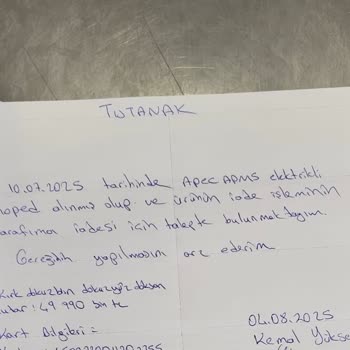 TUTANAK
10.07.2025 tarihinde APEC APMS elektrikli
moped alınmış olup ve ürünün iade işleminin
tarafıma iadesi için talepte bulunmaktayım.
Gereğinin yapılmasını arz ederim
Kırk dokuzbin dokuzyüz doksan
tutar : 49 990 bin tl
04.08.2025
Kart Bilgileri =
Kemal Yüksel